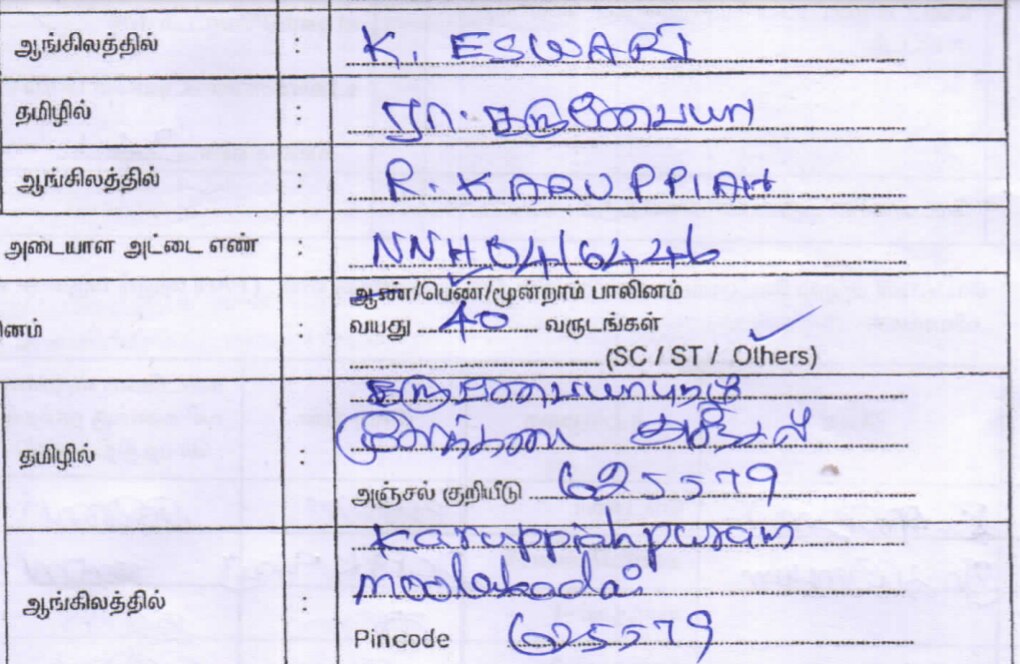 ஆங்கிலத்தில் : K. ESWARI
தமிழில் : ரா. கருப்பையா
ஆங்கிலத்தில் : R. KARUPPIAH
அடையாள அட்டை எண் : NNH0416246
ஆண்/பெண்/மூன்றாம் பாலினம்
னம் : வயது 40 வருடங்கள்
(SC / ST / Others)
கருப்பையாபுரம்
தமிழில் : அஞ்சல்
அஞ்சல் குறியீடு 625579
Karuppiahpuram
ஆங்கிலத்தில் : moolakadai
Pincode 625579